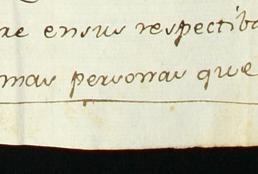 re ensus respectibo
mas personas que